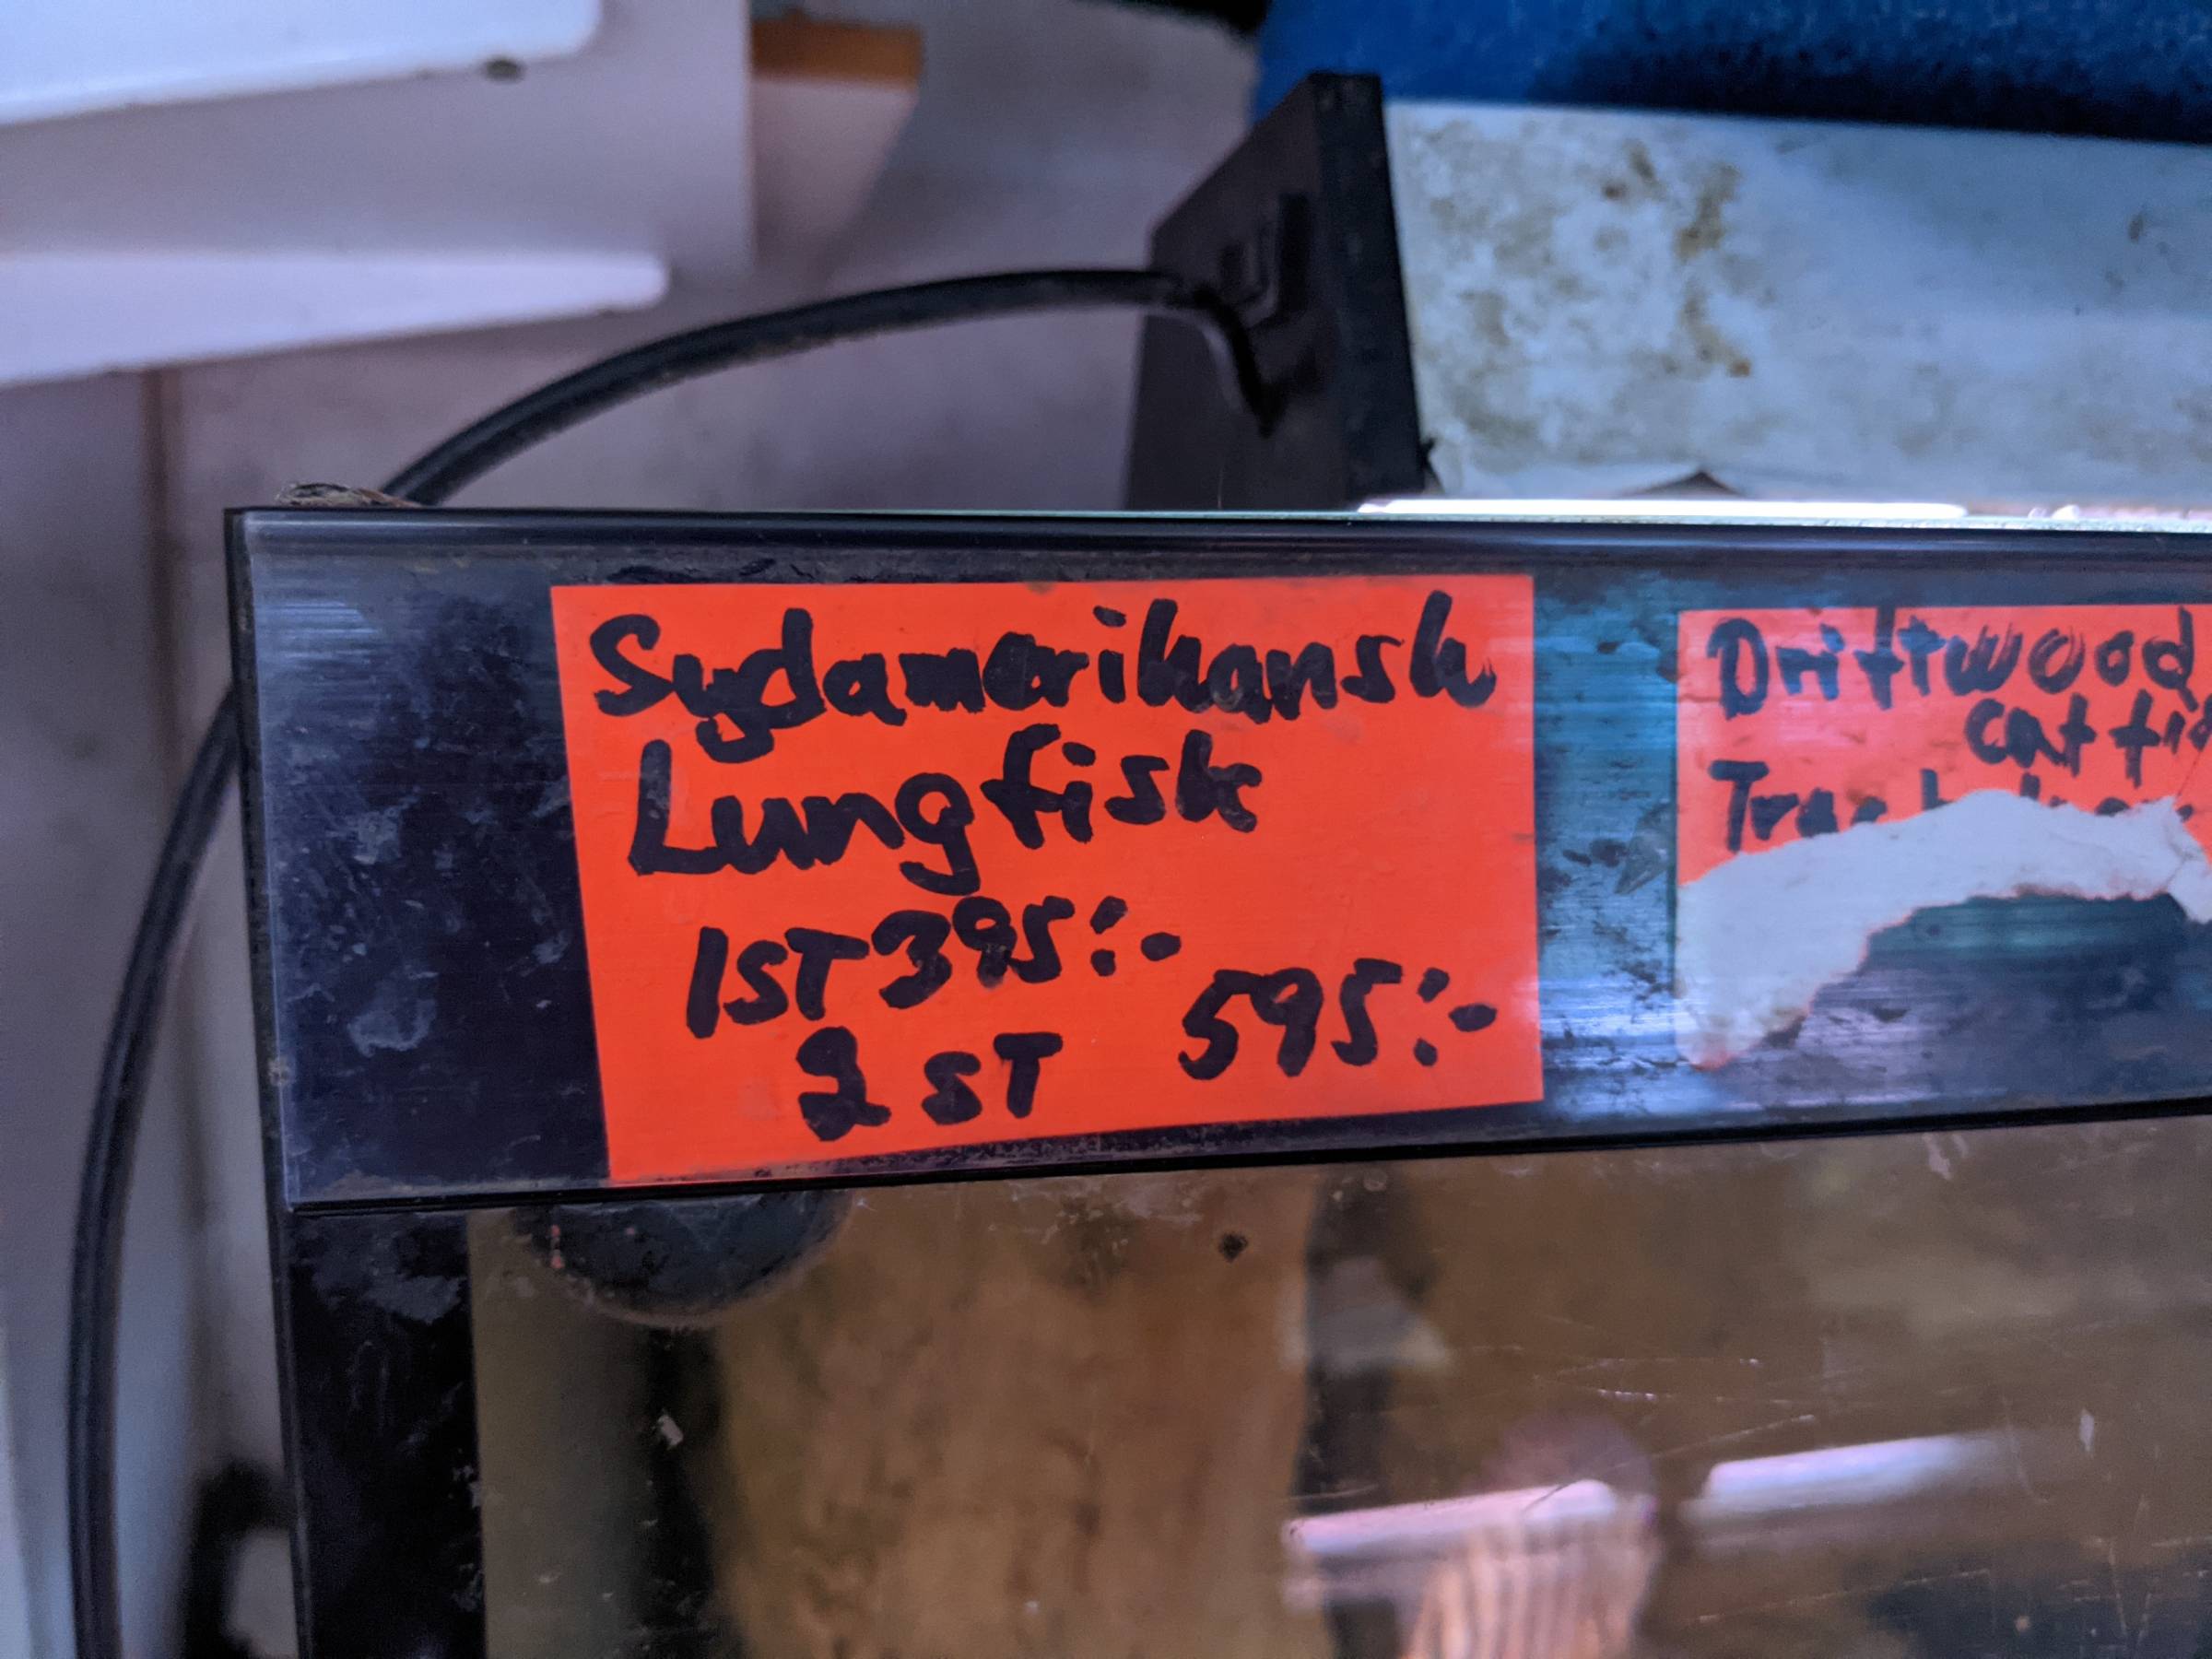 Sydamerikansk
Lungfisk
1ST 395:-
2 ST 595:-
Driftwood